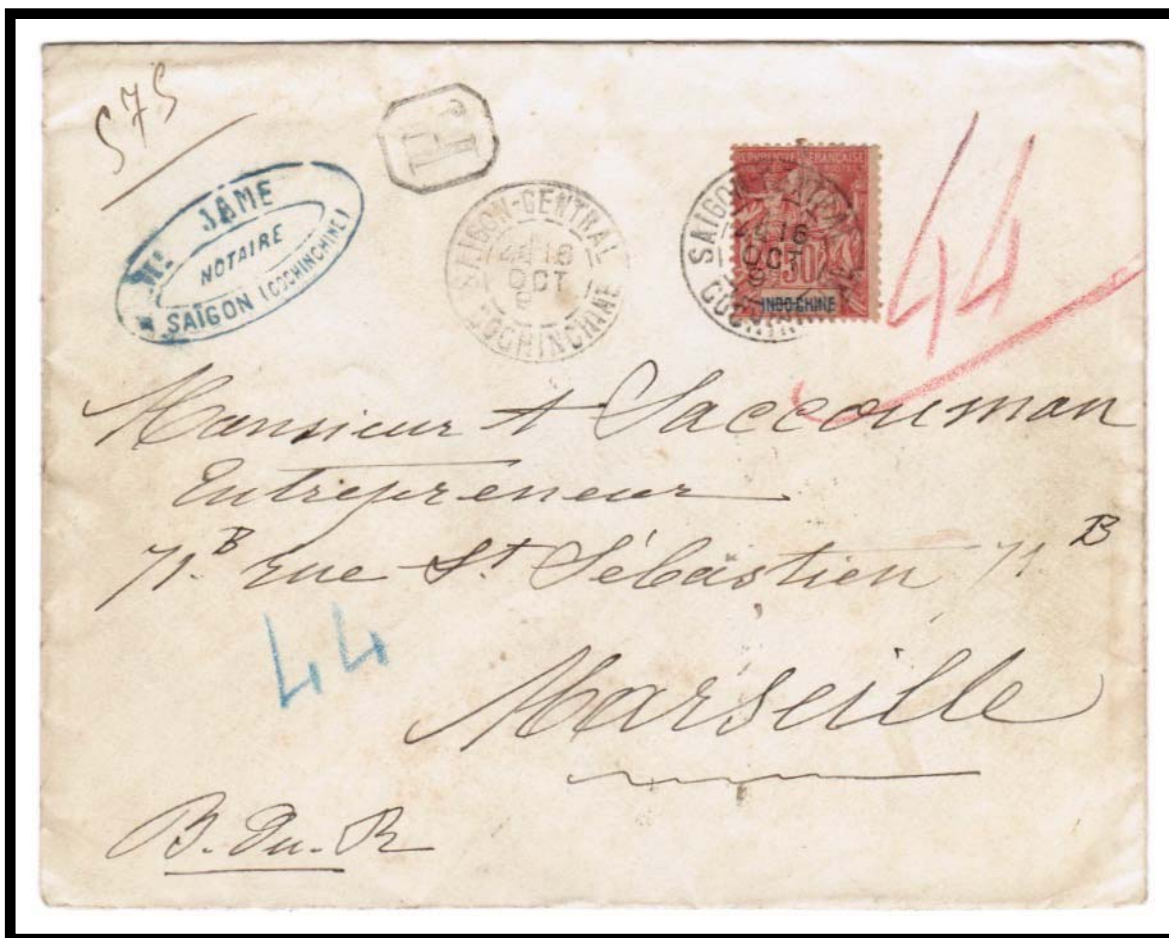 575
R
Me JAME
NOTAIRE
SAÏGON (COCHINCHINE)
SAIGON-CENTRAL
2E 16
OCT
9
COCHINCHINE
RÉPUBLIQUE FRANÇAISE
SAIGON-CENTRAL
2E 16
OCT
9
50
INDO-CHINE
44
Monsieur A Saccouman
Entrepreneur
71.B rue St Sébastien 71.B
44
Marseille
B. du. R